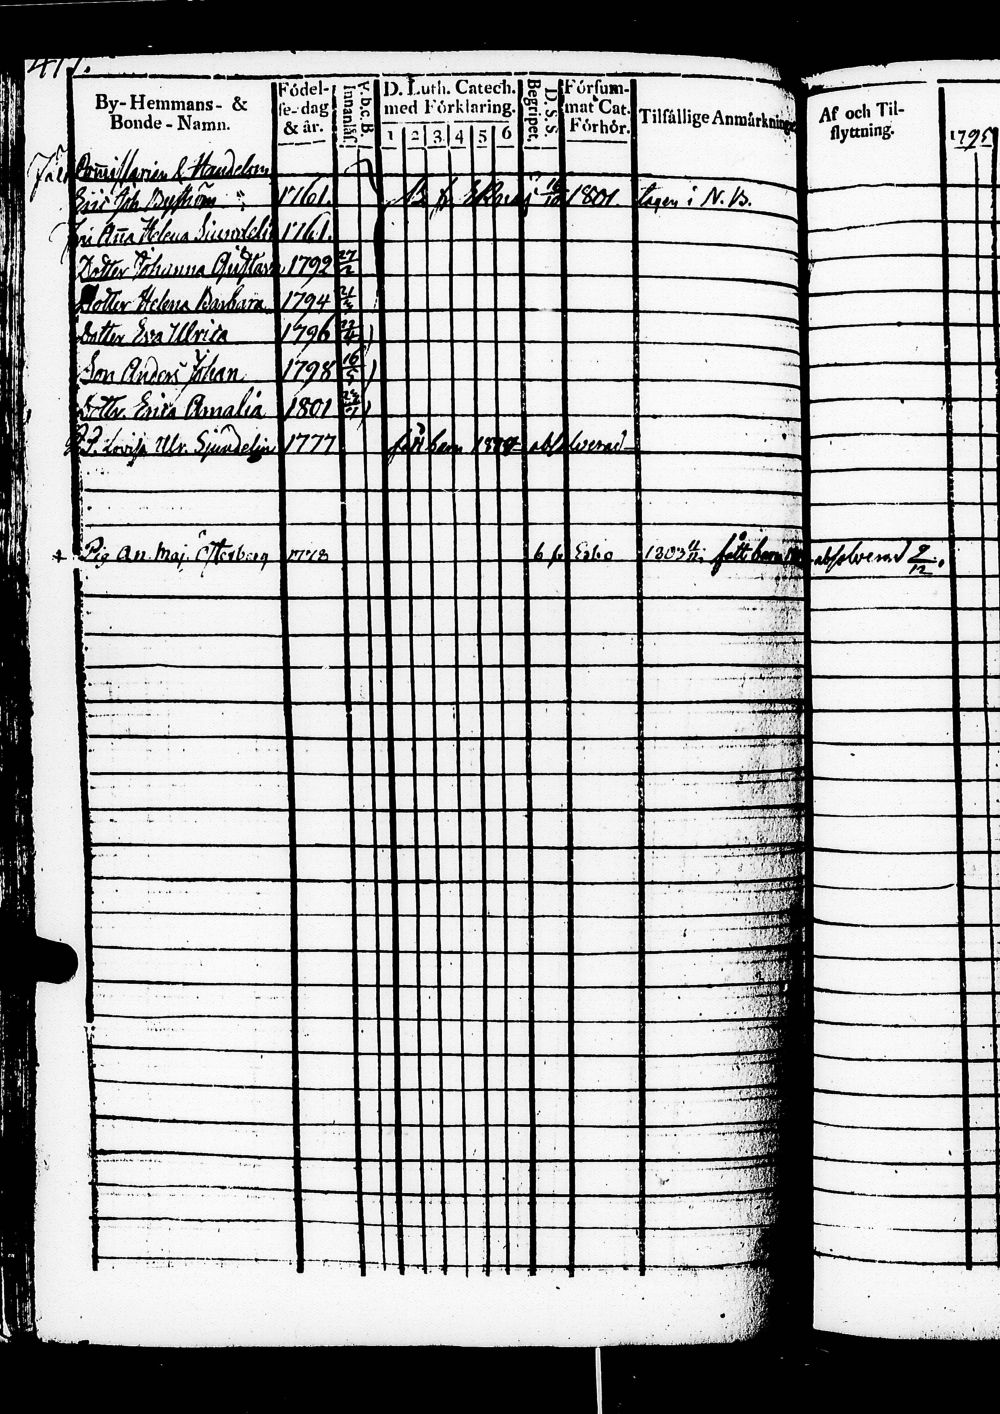 417.
By-Hemmans- & Bonde-Namn.
Födel-se-dag & år.
A. b. c. B. Innanläs.
D. Luth. Catech. med Förklaring.
1 2 3 4 5 6
D. S. S. Begriper.
Försum-mat Cat. Förhör.
Tilfällige Anmärkning
Af och Til-flyttning.
1795
Commissarien & Handelsm
Eric Joh Byström 1761. 1801. tagen i N. B.
Fru Aña Helena Sjundelin 1761.
Dotter Johanna 1792 27/2
Dotter Helena Barbara 1794
Dotter Eva Ulrica 1796
Son Anders Johan 1798 16/5
Dottr. Erica Amalia 1801
Lovisa Ulr. Sjundelin 1777 fått barn absolverad
Pig An. Maj. Österberg 1778 b b Esbo 1803 fått barn absolverad 9/12.